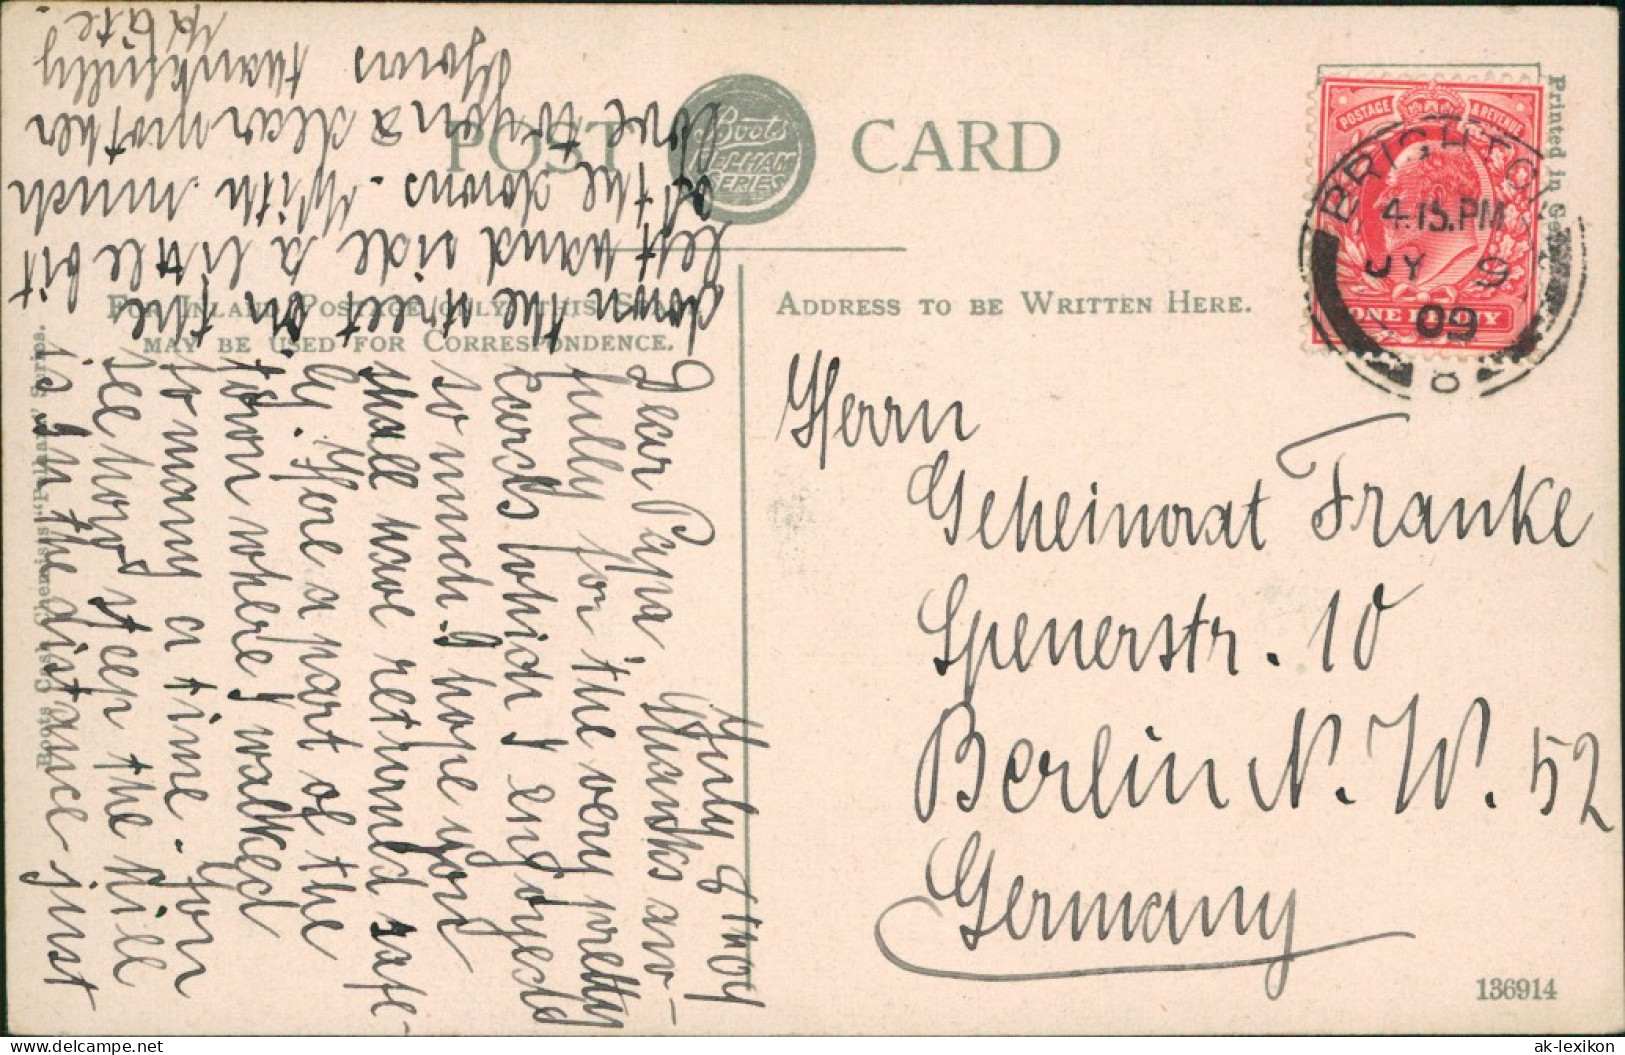 POST CARD
Boots
PELHAM
SERIES
FOR INLAND POSTAGE ONLY THIS SPACE
MAY BE USED FOR CORRESPONDENCE.
ADDRESS TO BE WRITTEN HERE.
Printed in Ge
POSTAGE & REVENUE
ONE PENNY
BRIGHTON
4.15.PM
JY 9
09
8
Herrn
Geheimrat Franke
Spenerstr. 10
Berlin N. W. 52
Germany
136914
Boots Cash Chemists "Pelham" Series.
July 8th 09
Dear Papa Thanks aw-
fully for the very pretty
cards which I enjoyed
so much. I hope you
shall have returned safe-
ly. Here a part of the
town where I walked
so many a time. You
see how steep the hill
is. In the distance just
down the street on the
left hand side a little bit
of the downs. With much
love to you a dear mother
Yours thankfully
Käte.
ak-lexikon.com